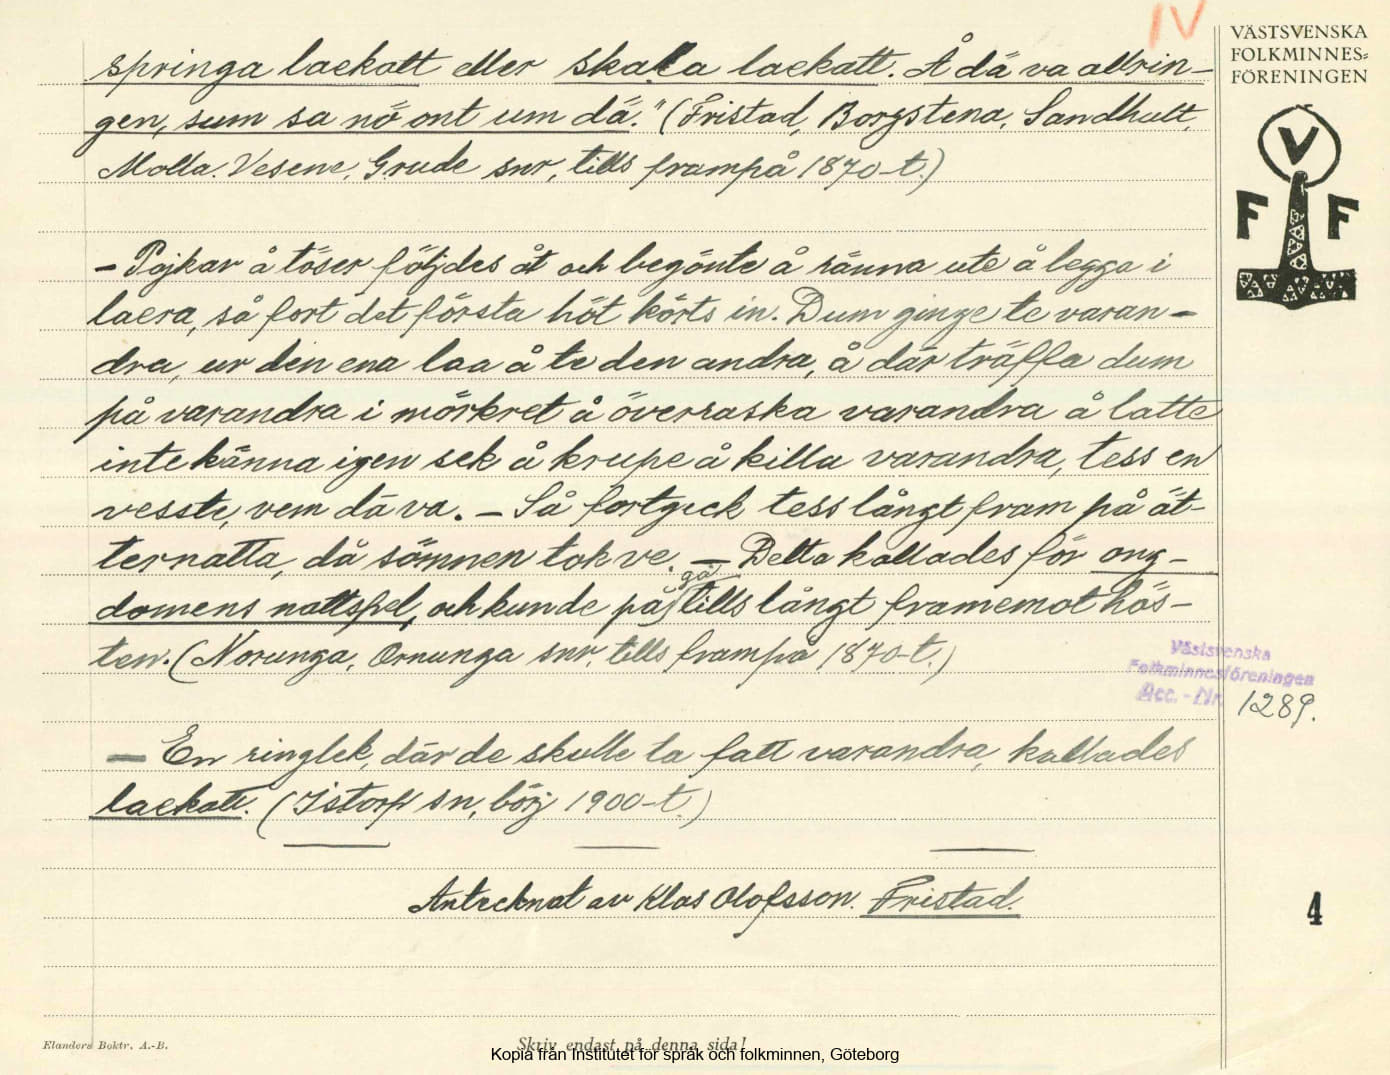 IV
VÄSTSVENSKA
FOLKMINNES=
FÖRENINGEN
V
F F
springa laekatt eller skaka laekatt. Å dä va allrin-
gen, sum sa nö ont um dä." (Fristad, Borgstena, Sandhult,
Molla. Vesene, Grude snr, tills frampå 1870-t.)
- Pojkar å töser följdes åt och begönte å ränna ute å legga i
laera, så fort det första höt körts in. Dum ginge te varan-
dra, ur den ena laa å te den andra, å där träffa dum
på varandra i mörkret å överraska varandra å latte
inte känna igen sek å krupe å killa varandra, tess en
vesste, vem dä va. - Så fortgick tess långt fram på ät-
ternatta, då sömnen tok ve. - Detta kallades för ong-
domens nattspel, och kunde på gå tills långt framemot hös-
ten. (Norunga, Ornunga snr. tills frampå 1870-t.)
Västsvenska
Folkminnesföreningen
Acc. - Nr. 1289.
- En ringlek, där de skulle ta fatt varandra, kallades
laekatt. (Istorp sn, börj 1900-t.)
Antecknat av Klas Olofsson. Fristad.
4
Elanders Boktr. A.-B.
Skriv endast på denna sida!
Kopia från Institutet för språk och folkminnen, Göteborg